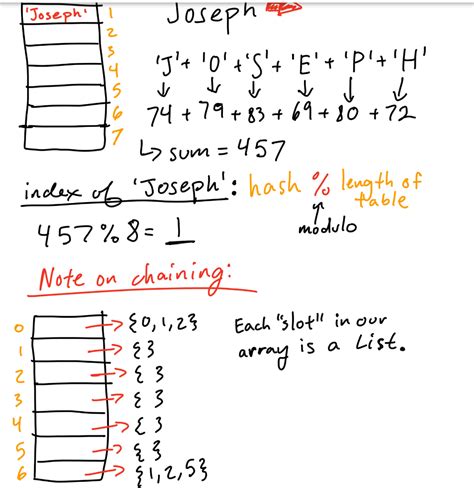 'Joseph' 1 Joseph
2
3
4 'J' + 'O' + 'S' + 'E' + 'P' + 'H'
5
6 74 + 79 + 83 + 69 + 80 + 72
7
↳ sum = 457
index of 'Joseph': hash % length of table
modulo
457 % 8 = 1
Note on chaining:
0 → {0,1,2} Each "slot" in our
1 → { } array is a List.
2 → { }
3 → { }
4 → { }
5 → { }
6 → {1,2,5}